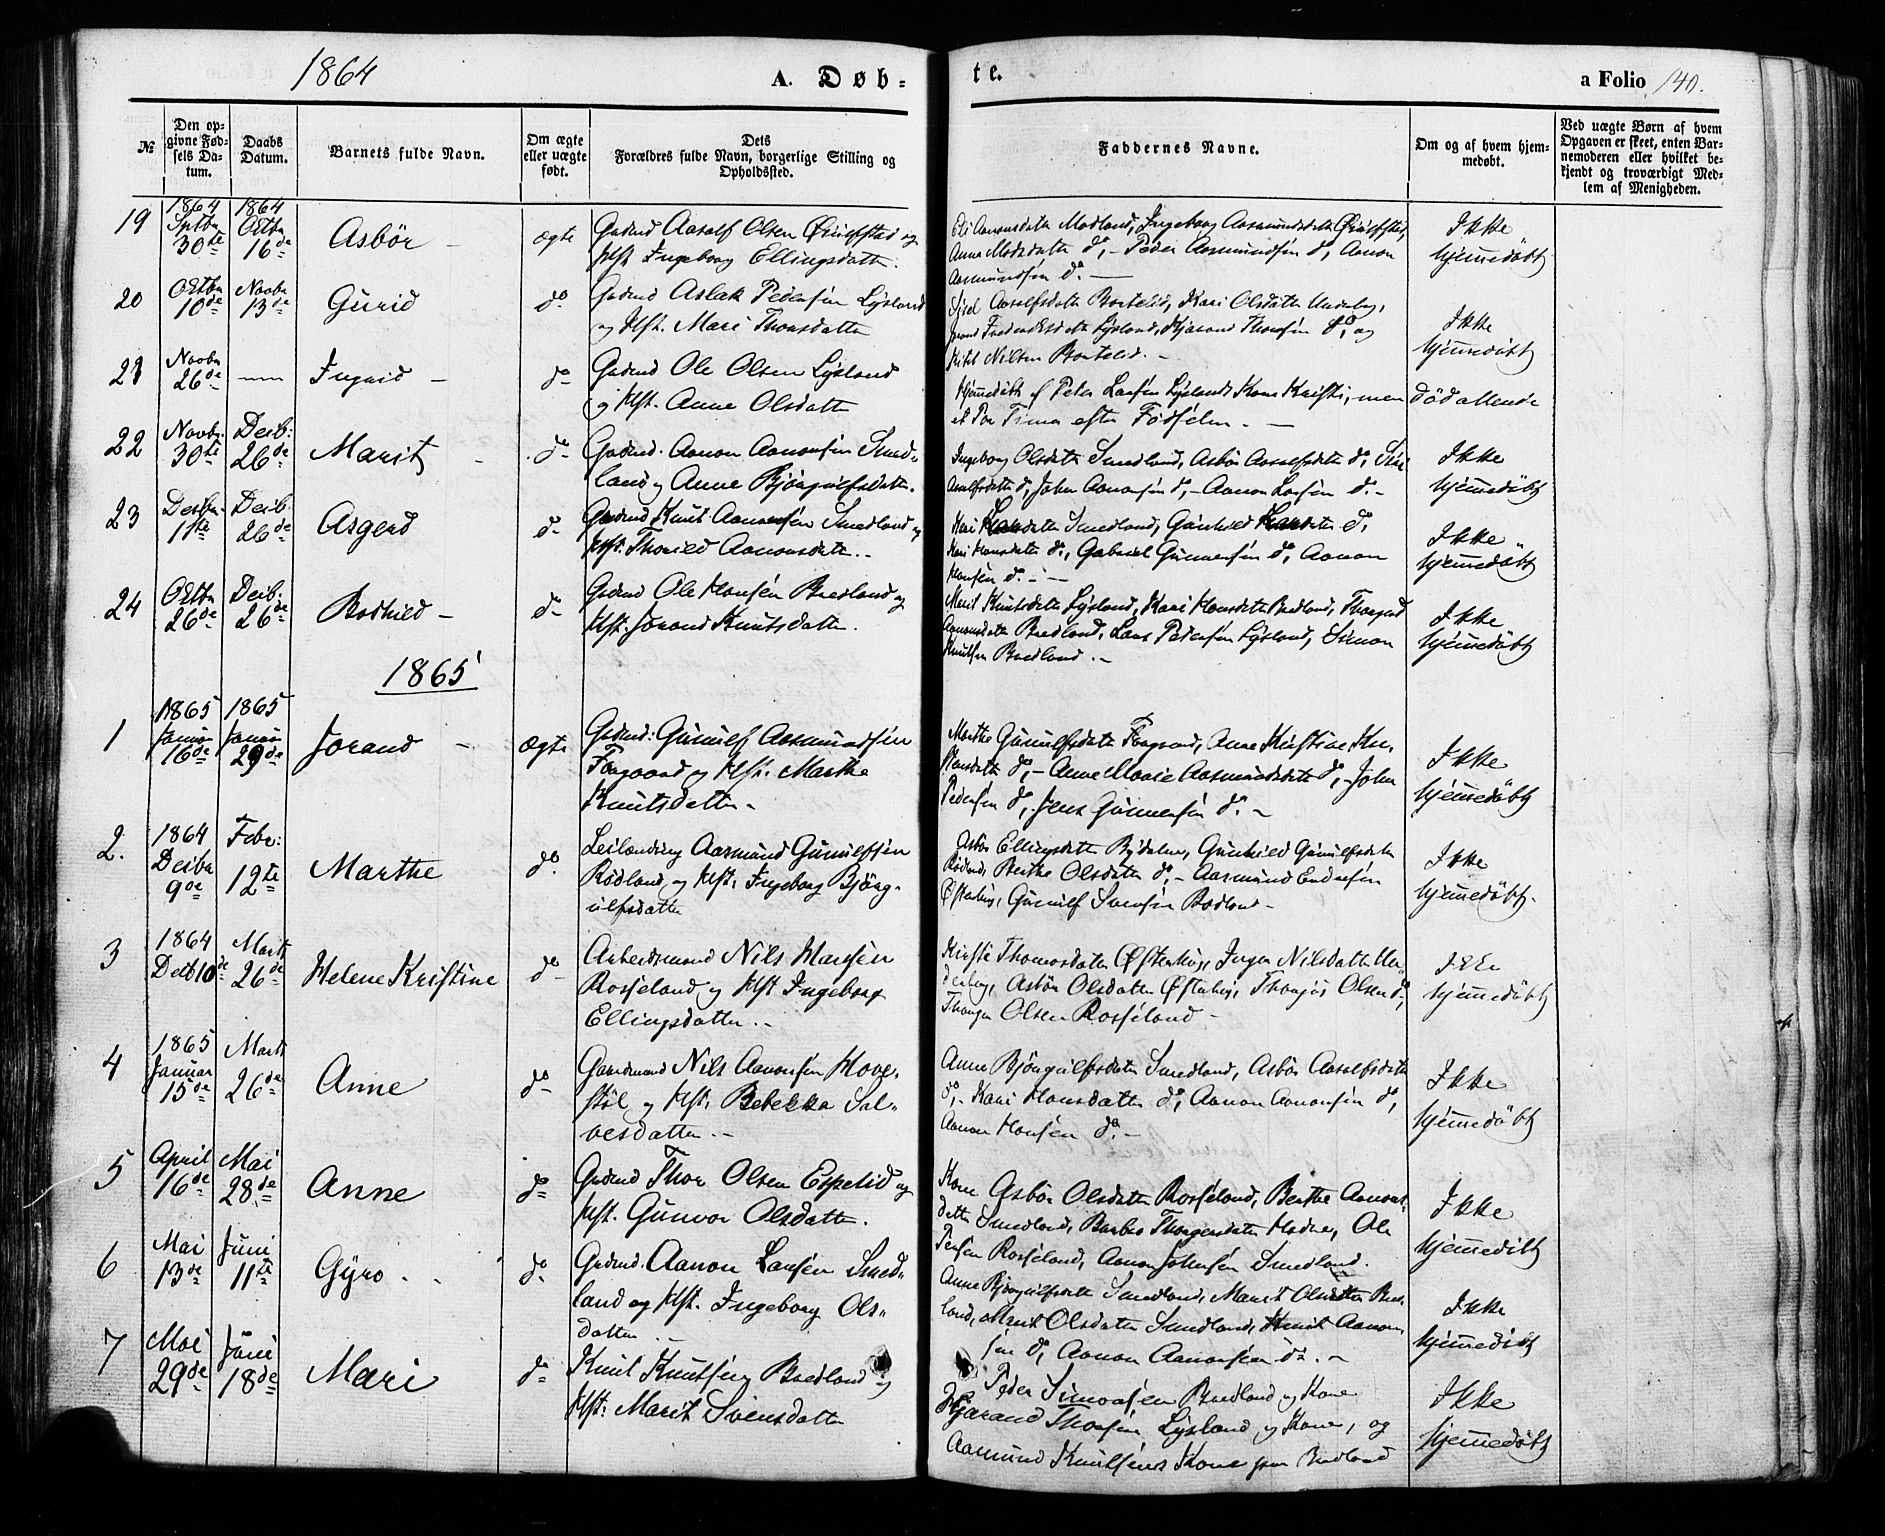 1864
A. Døb-
te.
a Folio 140.
№
Den op-
givne Fød-
sels Da-
tum.
Daabs
Datum.
Barnets fulde Navn.
Om ægte
eller uægte
født.
Dets
Forældres fulde Navn, borgerlige Stilling og
Opholdssted.
Faddernes Navne.
Om og af hvem hjem-
medøbt.
Ved uægte Børn af hvem
Opgaven er skeet, enten Bar-
nemoderen eller hvilket be-
kjendt og troværdigt Med-
lem af Menigheden.
19
1864
30te
1864
Octbr
16de
Asbör
ægte
Gadmd Aasolf Olsen og
Hst. Ingeborg Ellingsdatter.
Eli Aanonsdatter Modland, Ingeborg Aasmundsdatter
do, Peder Aasmundsen do, Aanon
Aasmundsen do.
Ikke
hjemmedøbt
20
Octbr
10de
Novbr
13de
Gurid
do
Gadmd Aslak Pedersen Lysland
og Hst. Mari Thorsdatter
Sisel Aasolfsdatter Bortelid, Kari Olsdatter
Lysland, Hjarand Thorsen do, og
Nilsen Bortelid.
Ikke
hjemmedøbt
21
Novbr
26de
Ingrid
do
Gadmd Ole Olsen Lysland
og Hst. Anne Olsdatter
Hjemmedøbt af Peter Larsen Lyslands Kone Kristi, men
et Par Timer efter Fødselen.
død allerede
22
Novbr:
30te
Decb:
26de
Marit
do
Gadmd. Aanon Aanonsen Smed-
land og Anne Bjöngulfsdatter.
Ingeborg Olsdatter Smedland, Asbör Aasolfsdatter do,
do, John Aanonsen do, Aanon Larsen do.
Ikke
hjemmedøbt
23
Decbr
11te
Decb:
26de
Asgerd
do
Gadmd Knut Aanonsen Smedland og
Hst: Thorild Aanonsdatter.
Kari Smedland, Gunhild do,
Kari Hansdatter do, Gabriel Gunnersen do, Aanon
Hansen do.
Ikke
hjemmedøbt
24
Octbr
26de
Decb:
26de
Bodhild
do
Gadmd Ole Hansen Bredland og
Hst: Jorand Knutsdatter.
Marit Knutsdatter Lysland, Kari Hansdatter Bredland,
Aanonsdatter Bredland, Lars Pedersen Lysland, Simon
Knutsen Bredland.
Ikke
hjemmedøbt
1865
1
1865
Januar
16de
1865
Januar
29de
Jorand
Ægte
Gadmd: Gunulf Aasmundsen
og Hst: Marthe
Knutsdatter
Marthe Gunulfsdatter Anne Kristine
do, Anne Marie Aasmundsdatter do, John
Pedersen do, Jens Gunnersen do.
Ikke
hjemmedøbt
2.
1864
Decbr
9de
Febr:
12te
Marthe
do.
Leilænding Aasmund Gunulfsen
Rødland og Hst: Ingeborg Bjöng-
ulfsdatter
Asbör Ellingsdatter Gunhild Gunulfsdatter
Rødland, Berthe Olsdatter do, Aasmund Endresen
Gunulf Svensen Rødland
Ikke
hjemmedøbt.
3
1864
Decb 10de
Marts
26de
Helene Kristine
do
Arbeidsmand Nils Hansen
Rosseland og Hst Ingeborg
Ellingsdatter.
Kirsti Thomasdatter Inger Nilsdatter
Asbör Olsdatter Olsen do,
Olsen Rosseland
Ikke
hjemmedøbt
4
1865
Januar
15de
Marts
26de
Anne
do
Gaardmand Nils Aanonsen Hove-
støl og Hst: Rebekka Sal-
vesdatter.
Anne Bjöngulfsdatter Smedland, Asbör Aasolfsdatter
do, Kari Hansdatter do, Aanon Aanonsen do,
Aanon Hansen do.
Ikke
hjemmedøbt
5
April
16de
Mai
28de
Anne
do
Gadmd Thor Olsen Espelid og
Hst. Gunvor Olsdatter.
Kone Asbör Olsdatter Rosseland, Berthe Aanons-
datter Smedland, Barbro Ole
Rosseland, Aanon Johnsen Smedland.
Ikke
hjemmedøbt
6
Mai
13de
Juni
11te
Gyro
do
Gadmd. Aanon Larsen Smed-
land og Hst. Ingeborg Ols-
datter
Anne Bjöngulfsdatter Smedland, Marit Olsdatter Bred-
land, Marit Olsdatter Smedland, Knut Aanon-
sen do, Aanon Aanonsen do.
Ikke
hjemmedøbt
7
Mai
29de
Juni
18de
Mari
do
Knut Knutsen Bredland og
Hst: Marit Svensdatter
Peder Simonsen Bredland og Kone
Hjarand Thorsen Lysland og Kone, og
Aasmund Knutsens Kone paa Bredland
Ikke
hjemmedøbt